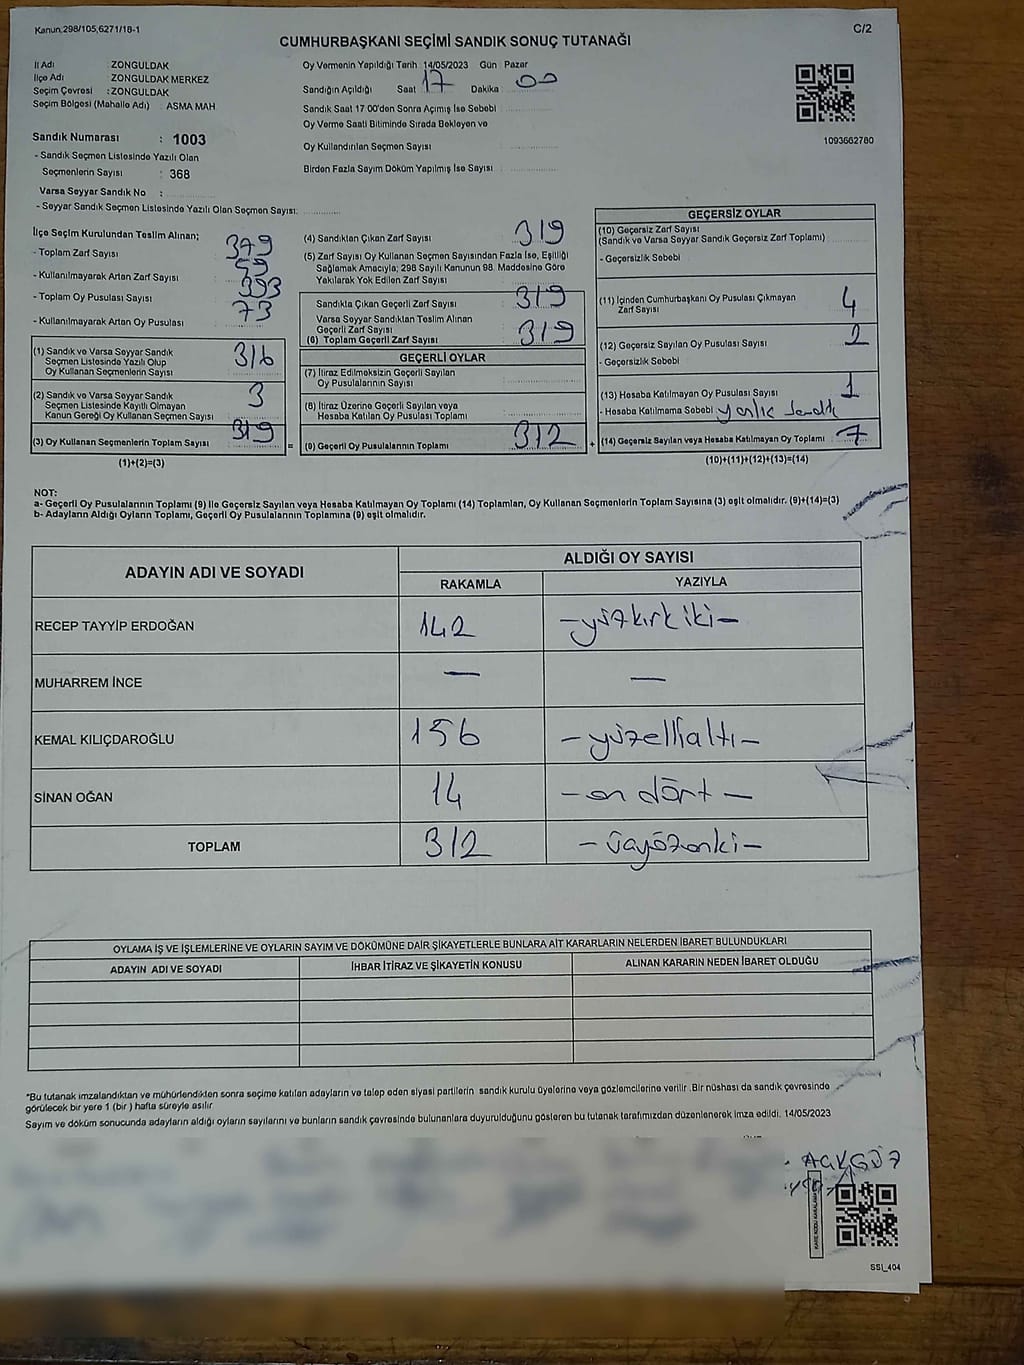 Kanun,298/105,6271/18-1
C/2
CUMHURBAŞKANI SEÇİMİ SANDIK SONUÇ TUTANAĞI
İl Adı : ZONGULDAK
İlçe Adı : ZONGULDAK MERKEZ
Seçim Çevresi : ZONGULDAK
Seçim Bölgesi (Mahalle Adı) : ASMA MAH
Oy Vermenin Yapıldığı Tarih 14/05/2023 Gün Pazar
Sandığın Açıldığı Saat 17 Dakika 00
Sandık Saat 17 00'den Sonra Açımış İse Sebebi
Oy Verme Saati Bitiminde Sırada Bekleyen ve
Oy Kullandırılan Seçmen Sayısı
Birden Fazla Sayım Döküm Yapılmış İse Sayısı
1093662780
Sandık Numarası : 1003
- Sandık Seçmen Listesinde Yazılı Olan
Seçmenlerin Sayısı : 368
Varsa Seyyar Sandık No :
- Seyyar Sandık Seçmen Listesinde Yazılı Olan Seçmen Sayısı:
İlçe Seçim Kurulundan Teslim Alınan;
- Toplam Zarf Sayısı 379
- Kullanılmayarak Artan Zarf Sayısı
- Toplam Oy Pusulası Sayısı 393
- Kullanılmayarak Artan Oy Pusulası 73
(1) Sandık ve Varsa Seyyar Sandık
Seçmen Listesinde Yazılı Olup
Oy Kullanan Seçmenlerin Sayısı 316
(2) Sandık ve Varsa Seyyar Sandık
Seçmen Listesinde Kayıtlı Olmayan
Kanun Gereği Oy Kullanan Seçmen Sayısı 3
(3) Oy Kullanan Seçmenlerin Toplam Sayısı 319
(1)+(2)=(3)
=
(4) Sandıktan Çıkan Zarf Sayısı 319
(5) Zarf Sayısı Oy Kullanan Seçmen Sayısından Fazla İse, Eşitliği
Sağlamak Amacıyla; 298 Sayılı Kanunun 98. Maddesine Göre
Yakılarak Yok Edilen Zarf Sayısı
Sandıkta Çıkan Geçerli Zarf Sayısı 319
Varsa Seyyar Sandıktan Teslim Alınan
Geçerli Zarf Sayısı
(6) Toplam Geçerli Zarf Sayısı 319
GEÇERLİ OYLAR
(7) İtiraz Edilmeksizin Geçerli Sayılan
Oy Pusulalarının Sayısı
(8) İtiraz Üzerine Geçerli Sayılan veya
Hesaba Katılan Oy Pusulası Toplamı
(9) Geçerli Oy Pusulalarının Toplamı 312
+
GEÇERSİZ OYLAR
(10) Geçersiz Zarf Sayısı
(Sandık ve Varsa Seyyar Sandık Geçersiz Zarf Toplamı)
- Geçersizlik Sebebi
(11) İçinden Cumhurbaşkanı Oy Pusulası Çıkmayan
Zarf Sayısı 4
(12) Geçersiz Sayılan Oy Pusulası Sayısı 2
- Geçersizlik Sebebi
(13) Hesaba Katılmayan Oy Pusulası Sayısı 1
- Hesaba Katılmama Sebebi
(14) Geçersiz Sayılan veya Hesaba Katılmayan Oy Toplamı 7
(10)+(11)+(12)+(13)=(14)
NOT:
a- Geçerli Oy Pusulalarının Toplamı (9) ile Geçersiz Sayılan veya Hesaba Katılmayan Oy Toplamı (14) Toplamları, Oy Kullanan Seçmenlerin Toplam Sayısına (3) eşit olmalıdır. (9)+(14)=(3)
b- Adayların Aldığı Oyların Toplamı, Geçerli Oy Pusulalarının Toplamına (9) eşit olmalıdır.
ADAYIN ADI VE SOYADI
ALDIĞI OY SAYISI
RAKAMLA YAZIYLA
RECEP TAYYİP ERDOĞAN 142 -yüzkırkiki-
MUHARREM İNCE — —
KEMAL KILIÇDAROĞLU 156 -yüzellialtı-
SİNAN OĞAN 14 -on dört-
TOPLAM 312 -üçyüzonki-
OYLAMA İŞ VE İŞLEMLERİNE VE OYLARIN SAYIM VE DÖKÜMÜNE DAİR ŞİKAYETLERLE BUNLARA AİT KARARLARIN NELERDEN İBARET BULUNDUKLARI
ADAYIN ADI VE SOYADI İHBAR İTİRAZ VE ŞİKAYETİN KONUSU ALINAN KARARIN NEDEN İBARET OLDUĞU
*Bu tutanak imzalandıktan ve mühürlendikten sonra seçime katılan adayların ve talep eden siyasi partilerin sandık kurulu üyelerine veya gözlemcilerine verilir. Bir nüshası da sandık çevresinde
görülecek bir yere 1 (bir) hafta süreyle asılır
Sayım ve döküm sonucunda adayların aldığı oyların sayılarını ve bunların sandık çevresinde bulunanlara duyurulduğunu gösteren bu tutanak tarafımızdan düzenlenerek imza edildi. 14/05/2023
AÇIKGÖZ
KARE KODU KARALAMAYINIZ
SSI_404